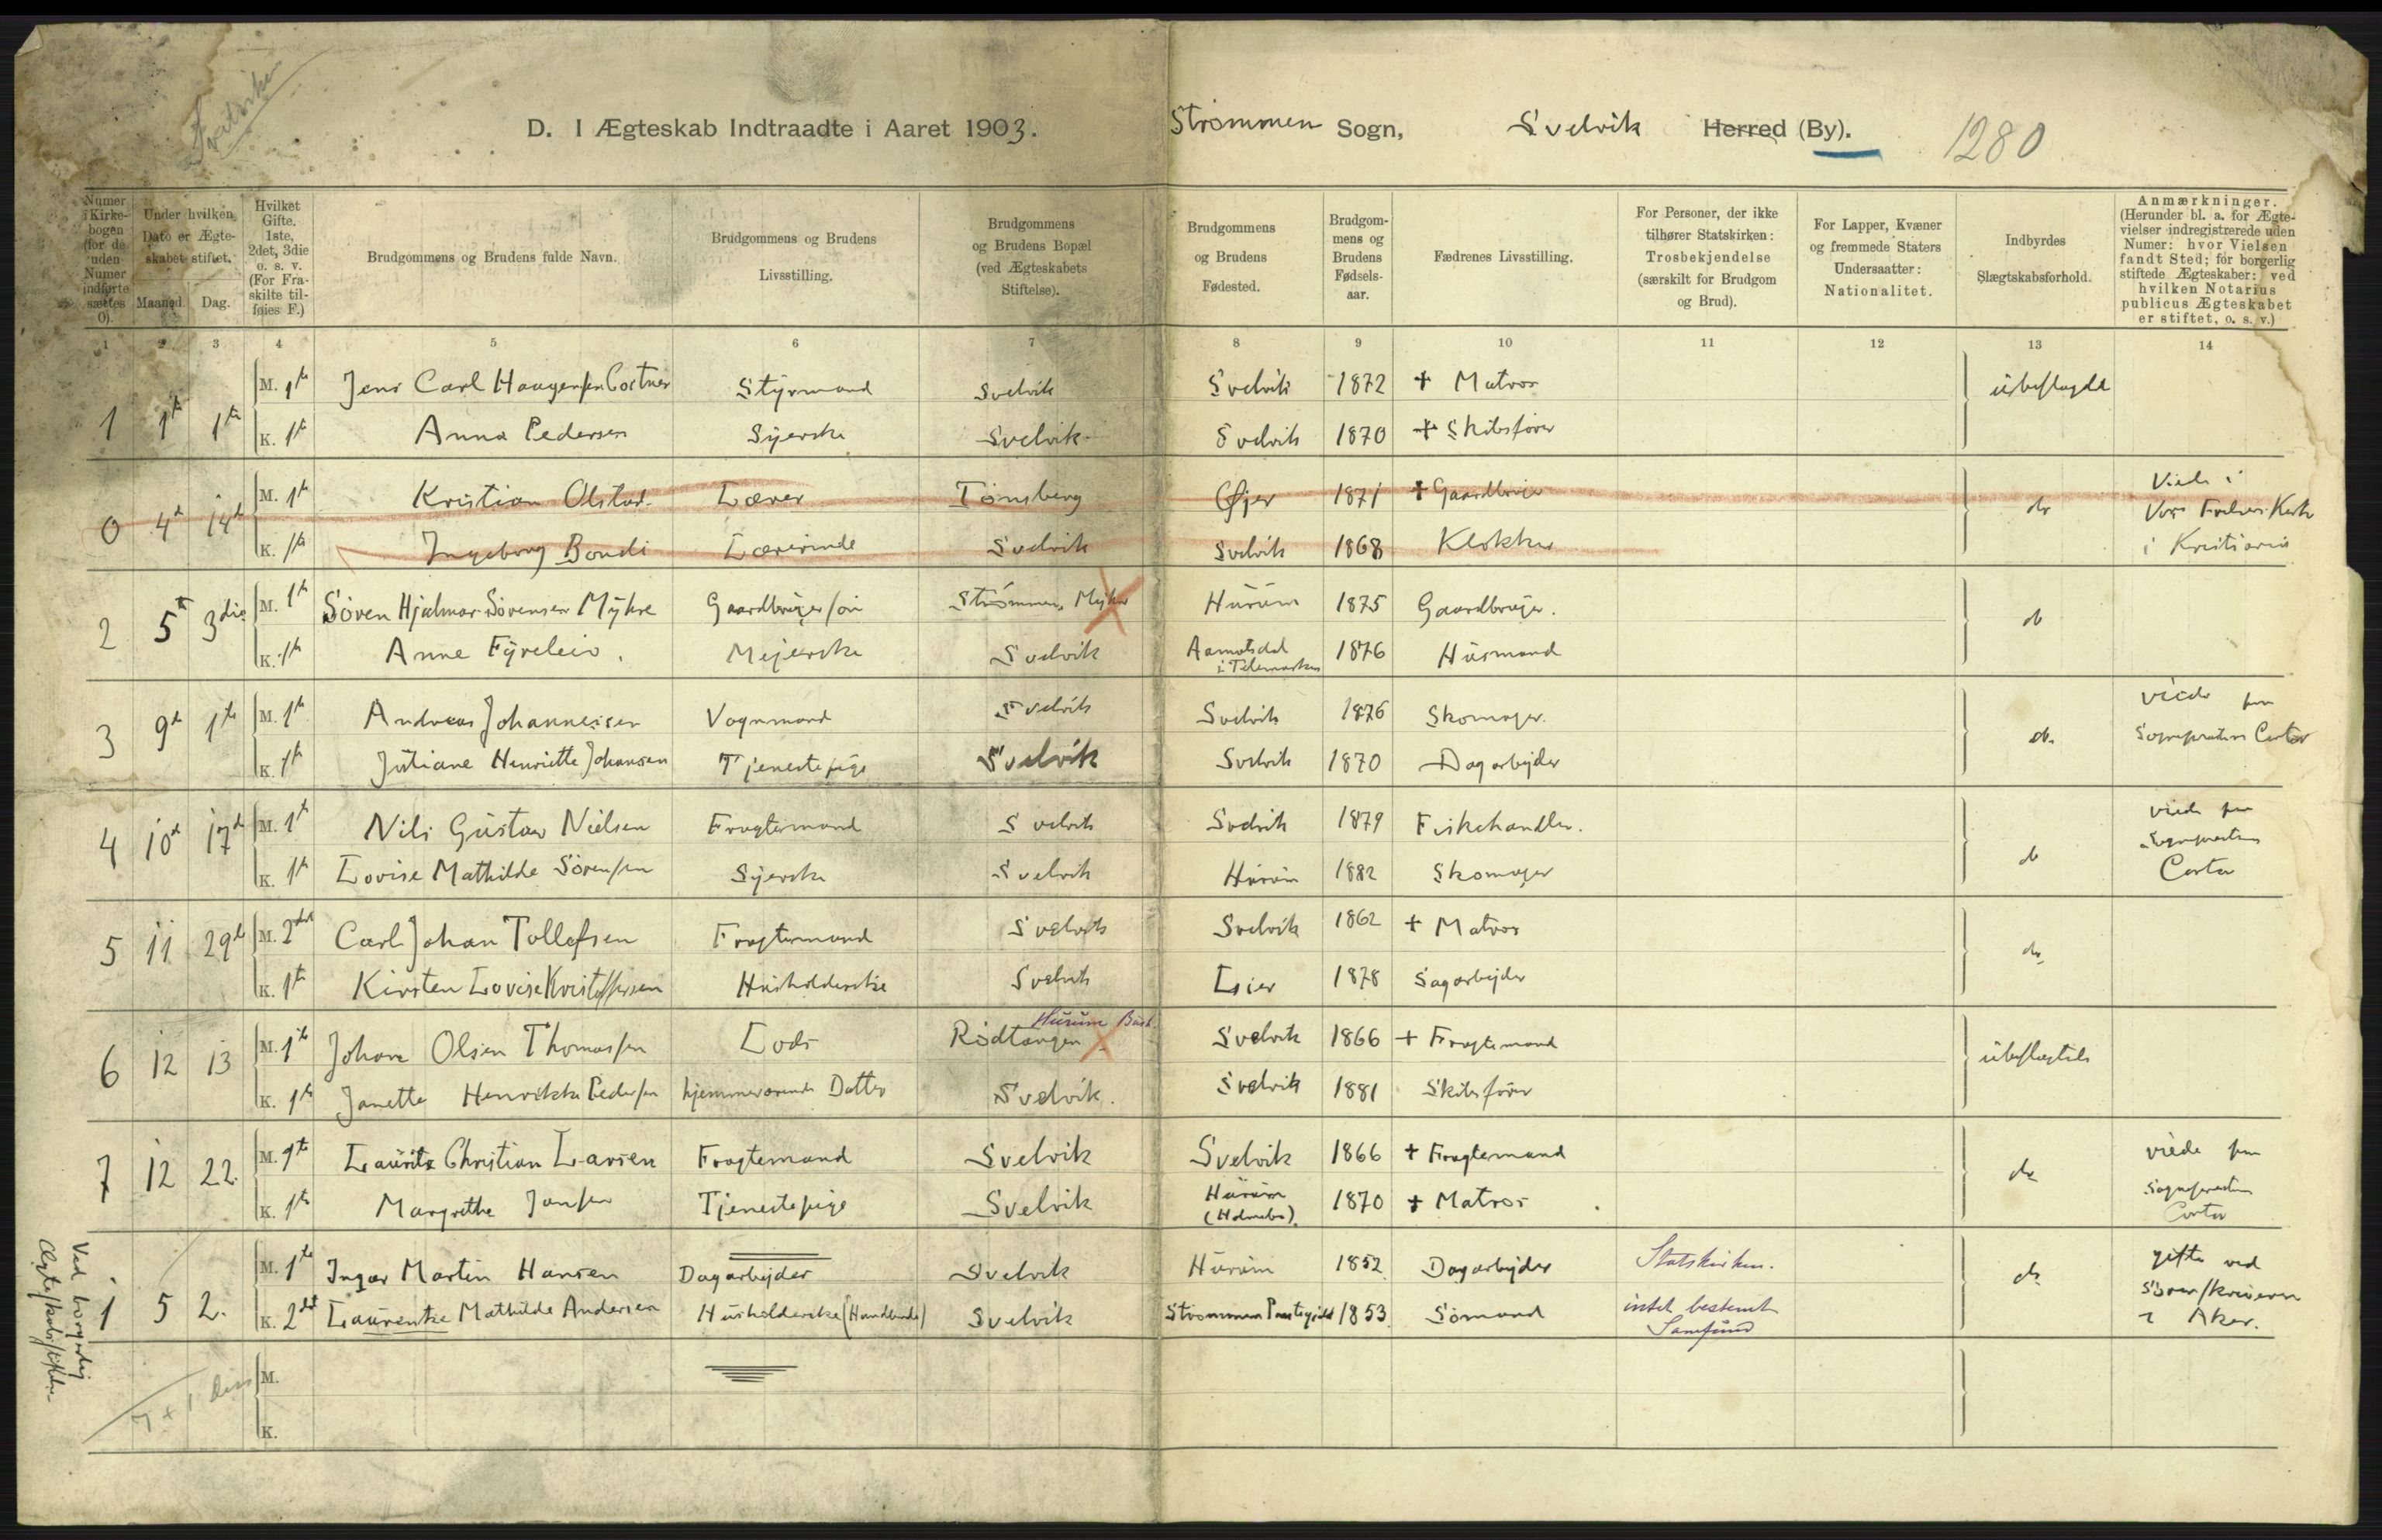 D. I Ægteskab Indtraadte i Aaret 1903. Strømmen Sogn, Svelvik Herred (By). 1280
Numer i Kirkebogen (for de uden Numer indførte sættes 0). Under hvilken Dato er Ægteskabet stiftet. Maaned. Dag. Hvilket Gifte. 1ste, 2det, 3die o. s. v. (For Fraskilte tilføies F.) Brudgommens og Brudens fulde Navn. Brudgommens og Brudens Livsstilling. Brudgommens og Brudens Bopæl (ved Ægteskabets Stiftelse). Brudgommens og Brudens Fødested. Brudgommens og Brudens Fødselsaar. Fædrenes Livsstilling. For Personer, der ikke tilhører Statskirken: Trosbekjendelse (særskilt for Brudgom og Brud). For Lapper, Kvæner og fremmede Staters Undersaatter: Nationalitet. Indbyrdes Slægtskabsforhold. Anmærkninger. (Herunder bl. a. for Ægtevielser indregistrerede uden Numer: hvor Vielsen fandt Sted; for borgerlig stiftede Ægteskaber: ved hvilken Notarius publicus Ægteskabet er stiftet, o. s. v.)
1 2 3 4 5 6 7 8 9 10 11 12 13 14
1 1te 1te M. 1te Jens Carl Haagensen Styrmand Svelvik Svelvik 1872 + Matros
K. 1te Anna Pedersen Syerske Svelvik Svelvik 1870 + Skibsfører
0 4de 14de M. 1te Kristian Olstad Lærer Tønsberg Øjer 1871 + Gaardbruger do Viede i
Vors Frelsers Kirke
K. 1te Ingeborg Bondi Lærerinde Svelvik Svelvik 1868 Klokker i Kristiania
2 5te 3die M. 1te Søren Hjalmar Sørensen Mykre Gaardbrugersøn Strømmen, Hurum 1875 Gaardbruger. do
K. 1te Anne Mejerske Svelvik Aamotsdal i Telemarken 1876 Husmand
3 9de 1te M. 1te Andreas Johannessen Vognmand Svelvik Svelvik 1876 Skomager. do. viede
K. 1te Juliane Henriette Johansen Tjenestepige Svelvik Svelvik 1870 Dagarbejder
4 10de 17de M. 1te Nils Gustav Nielsen Fragtemand Svelvik Svelvik 1879 Fiskehandler. do viede
K. 1te Lovise Mathilde Sørensen Syerske Svelvik Hurum 1882 Skomager
5 11 29de M. 2det Carl Johan Tollefsen Fragtemand Svelvik Svelvik 1862 + Matros do
K. 1te Kirsten Lovise Kristoffersen Husholderske Svelvik Lier 1878 Sagarbejder
Hurum
6 12 13 M. 1te Johan Olsen Thomassen Lods Rødtangen Svelvik 1866 + Fragtemand ubeslægtede
K. 1te Janette Henrikke Pedersen hjemmeværende Datter Svelvik. Svelvik 1881 Skibsfører
7 12 22. M. 1te Lauritz Christian Larsen Fragtemand Svelvik Svelvik 1866 + Fragtemand do viede
K. 1te Margrethe Jansen Tjenestepige Svelvik Hurum 1870 + Matros
Ved borgerlig
1 5 2. M. 1te Ingar Martin Hansen Dagarbejder Svelvik Hurum 1852 Dagarbejder Statskirken. do gifte ved
Sorenskriveren
K. 2det Laurentze Mathilde Andersen Husholderske Svelvik Strømmen Prestegjeld 1853 Sømand intet bestemt
Samfund
i Aker.
M.
7 + 1
K.